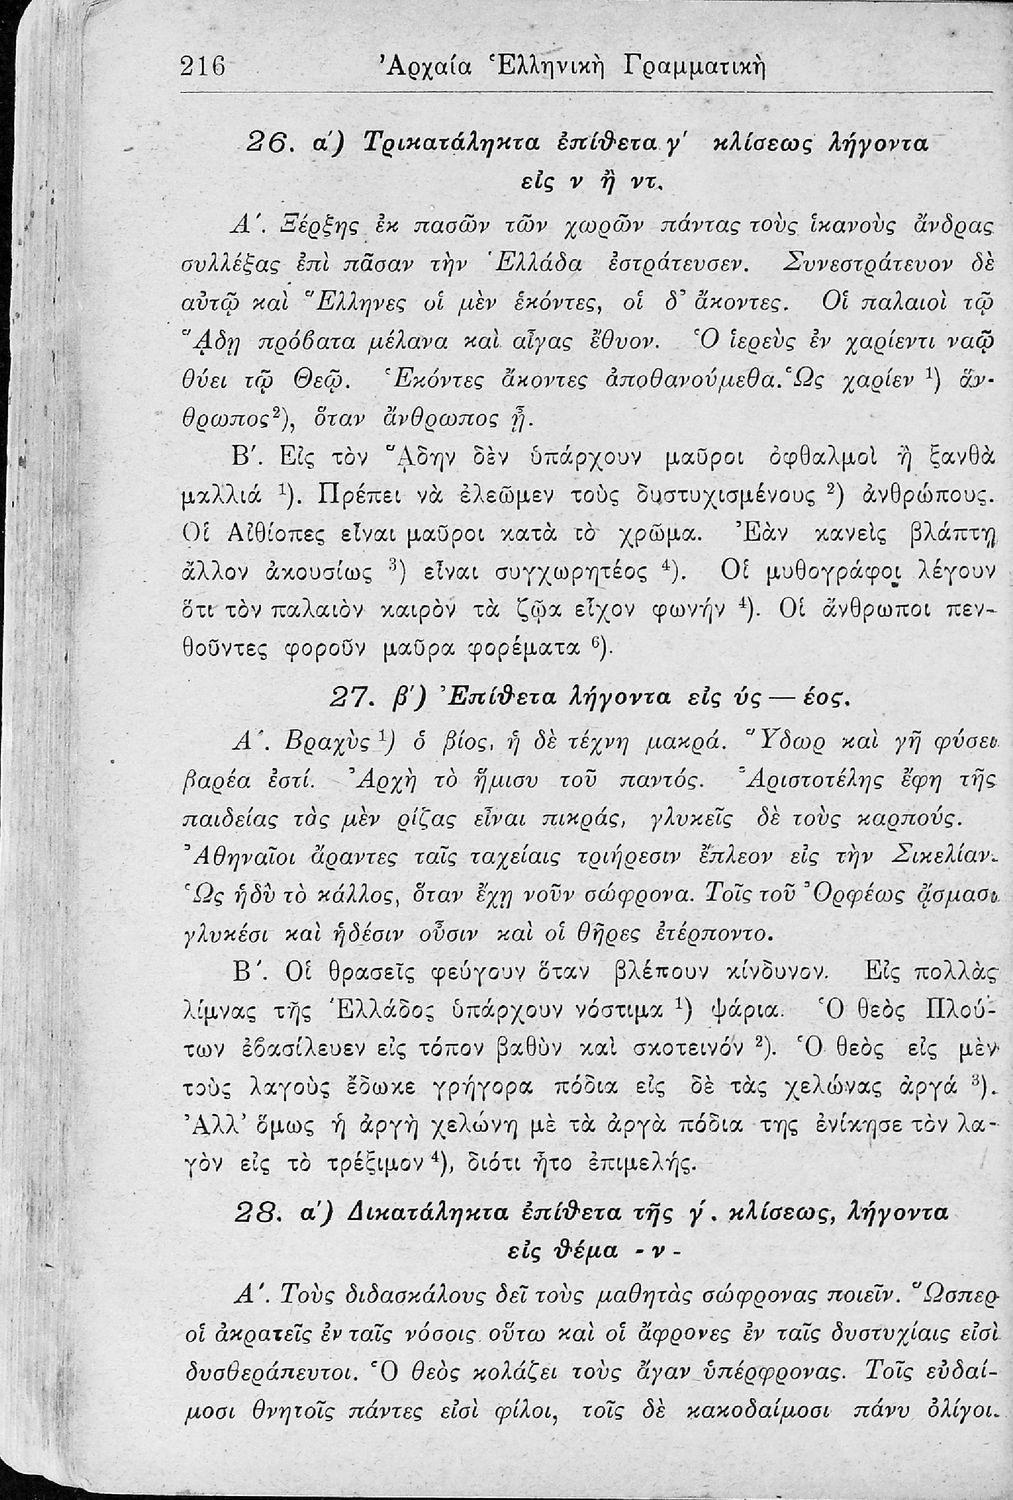 216 Ἀρχαία Ἑλληνικὴ Γραμματικὴ
26. α΄) Τρικατάληκτα ἐπίθετα γ΄ κλίσεως λήγοντα
εἰς ν ἢ ντ.
Α΄. Ξέρξης ἐκ πασῶν τῶν χωρῶν πάντας τοὺς ἱκανοὺς ἄνδρας
συλλέξας ἐπὶ πᾶσαν τὴν Ἑλλάδα ἐστράτευσεν. Συνεστράτευον δὲ
αὐτῷ καὶ Ἕλληνες οἱ μὲν ἑκόντες, οἱ δ’ ἄκοντες. Οἱ παλαιοὶ τῷ
ᾍδῃ πρόβατα μέλανα καὶ αἶγας ἔθυον. Ὁ ἱερεὺς ἐν χαρίεντι ναῷ
θύει τῷ Θεῷ. Ἑκόντες ἄκοντες ἀποθανούμεθα. Ὡς χαρίεν ¹) ἄν-
θρωπος²), ὅταν ἄνθρωπος ᾖ.
Β΄. Εἰς τὸν ᾍδην δὲν ὑπάρχουν μαῦροι ὀφθαλμοὶ ἢ ξανθὰ
μαλλιά ¹). Πρέπει νὰ ἐλεῶμεν τοὺς δυστυχισμένους ²) ἀνθρώπους.
Οἱ Αἰθίοπες εἶναι μαῦροι κατὰ τὸ χρῶμα. Ἐὰν κανεὶς βλάπτῃ
ἄλλον ἀκουσίως ³) εἶναι συγχωρητέος ⁴). Οἱ μυθογράφοι λέγουν
ὅτι τὸν παλαιὸν καιρὸν τὰ ζῷα εἶχον φωνήν ⁴). Οἱ ἄνθρωποι πεν-
θοῦντες φοροῦν μαῦρα φορέματα ⁶).
27. β΄) Ἐπίθετα λήγοντα εἰς ύς — έος.
Α΄. Βραχὺς ¹) ὁ βίος, ἡ δὲ τέχνη μακρά. Ὕδωρ καὶ γῆ φύσει
βαρέα ἐστί. Ἀρχὴ τὸ ἥμισυ τοῦ παντός. Ἀριστοτέλης ἔφη τῆς
παιδείας τὰς μὲν ρίζας εἶναι πικράς, γλυκεῖς δὲ τοὺς καρπούς.
Ἀθηναῖοι ἄραντες ταῖς ταχείαις τριήρεσιν ἔπλεον εἰς τὴν Σικελίαν.
Ὡς ἡδὺ τὸ κάλλος, ὅταν ἔχῃ νοῦν σώφρονα. Τοῖς τοῦ Ὀρφέως ᾄσμασι
γλυκέσι καὶ ἡδέσιν οὖσιν καὶ οἱ θῆρες ἐτέρποντο.
Β΄. Οἱ θρασεῖς φεύγουν ὅταν βλέπουν κίνδυνον. Εἰς πολλὰς
λίμνας τῆς Ἑλλάδος ὑπάρχουν νόστιμα ¹) ψάρια. Ὁ θεὸς Πλού-
των ἐβασίλευεν εἰς τόπον βαθὺν καὶ σκοτεινόν ²). Ὁ θεὸς εἰς μὲν
τοὺς λαγοὺς ἔδωκε γρήγορα πόδια εἰς δὲ τὰς χελώνας ἀργά ³).
Ἀλλ’ ὅμως ἡ ἀργὴ χελώνη μὲ τὰ ἀργὰ πόδια της ἐνίκησε τὸν λα-
γὸν εἰς τὸ τρέξιμον ⁴), διότι ἦτο ἐπιμελής.
28. α΄) Δικατάληκτα ἐπίθετα τῆς γ΄. κλίσεως, λήγοντα
εἰς θέμα - ν -
Α΄. Τοὺς διδασκάλους δεῖ τοὺς μαθητὰς σώφρονας ποιεῖν. Ὥσπερ
οἱ ἀκρατεῖς ἐν ταῖς νόσοις οὕτω καὶ οἱ ἄφρονες ἐν ταῖς δυστυχίαις εἰσὶ
δυσθεράπευτοι. Ὁ θεὸς κολάζει τοὺς ἄγαν ὑπέρφρονας. Τοῖς εὐδαί-
μοσι θνητοῖς πάντες εἰσὶ φίλοι, τοῖς δὲ κακοδαίμοσι πάνυ ὀλίγοι.